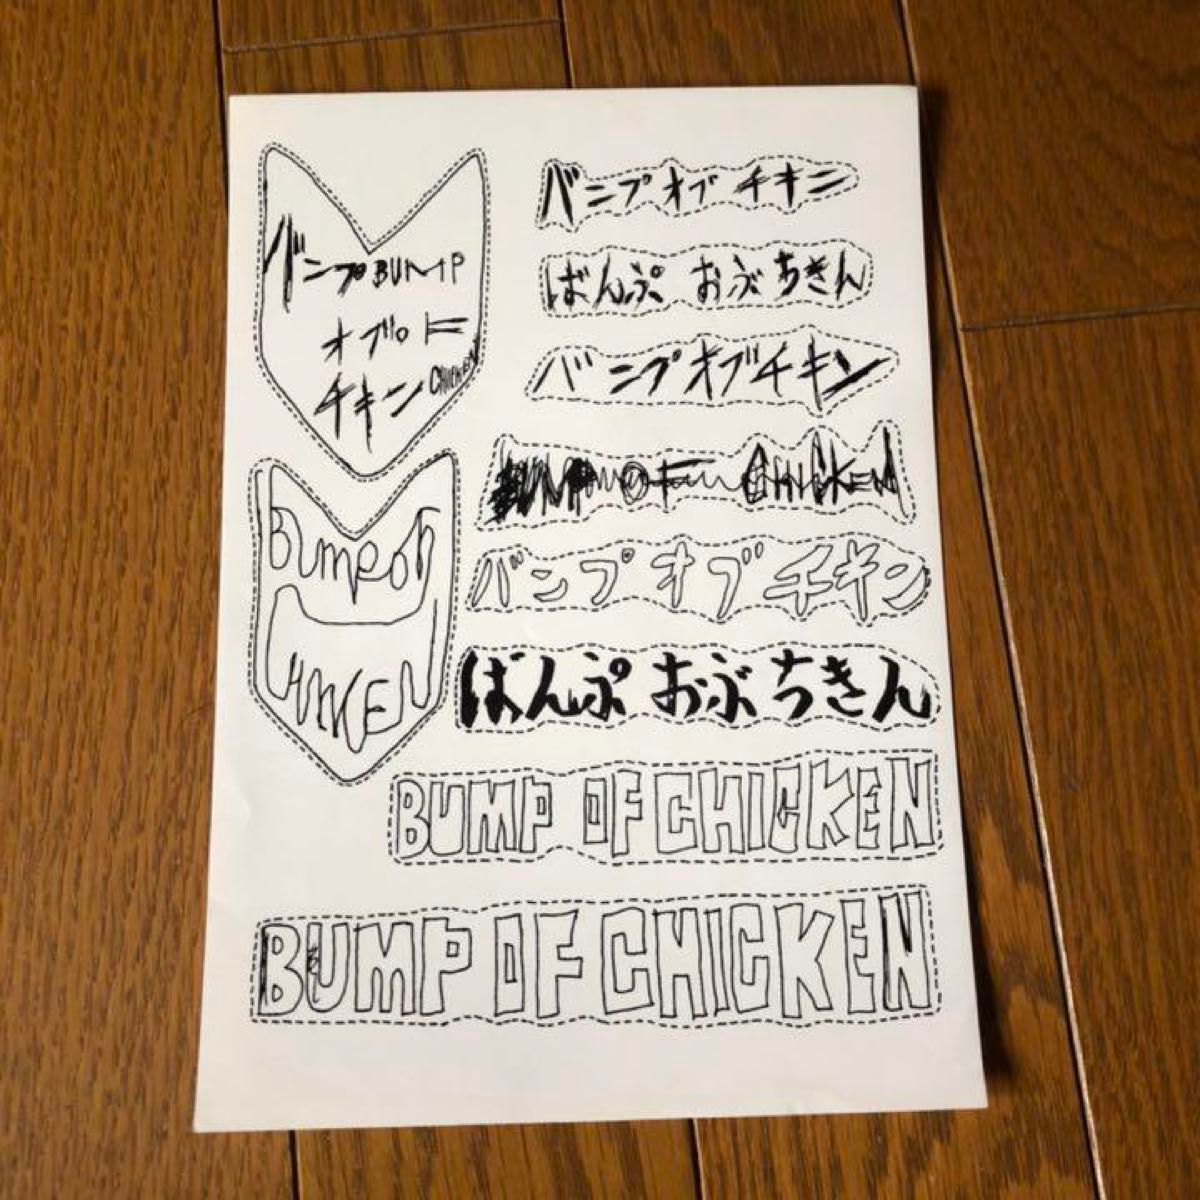 バンプBUMP
オブOF
チキンCHICKEN
BUMP OF
CHICKEN
バンプ オブ チキン
ばんぷ おぶ ちきん
バンプ オブ チキン
BUMP OF CHICKEN
バンプ オブ チキン
ばんぷ おぶ ちきん
BUMP OF CHICKEN
BUMP OF CHICKEN